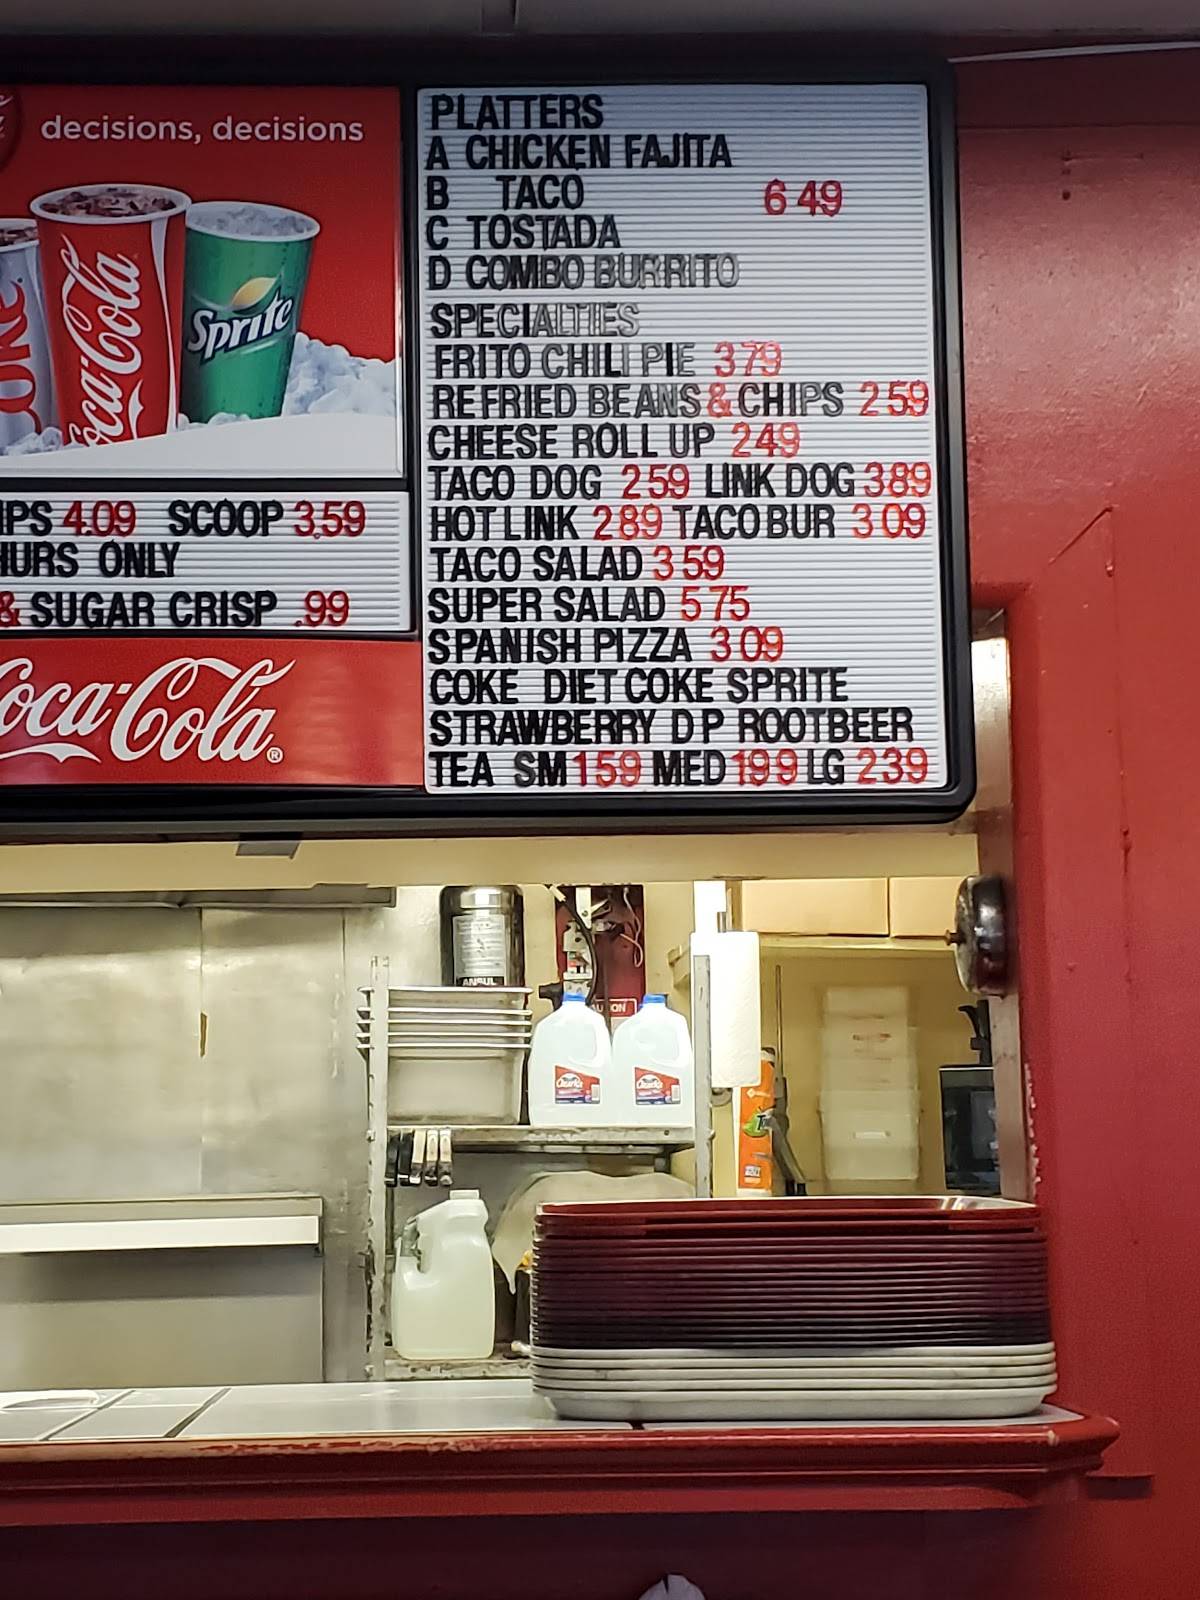 decisions, decisions
Coca-Cola
Sprite
4.09 SCOOP 3.59
ONLY
& SUGAR CRISP .99
Coca-Cola®
PLATTERS
A CHICKEN FAJITA
B TACO 6 49
C TOSTADA
D COMBO BURRITO
SPECIALTIES
FRITO CHILI PIE 3 79
REFRIED BEANS & CHIPS 2 59
CHEESE ROLL UP 2 49
TACO DOG 2 59 LINK DOG 3 89
HOT LINK 2 89 TACO BUR 3 09
TACO SALAD 3 59
SUPER SALAD 5 75
SPANISH PIZZA 3 09
COKE DIET COKE SPRITE
STRAWBERRY D P ROOTBEER
TEA SM 1 59 MED 1 99 LG 2 39
ANSUL
Ozarka
Ozarka